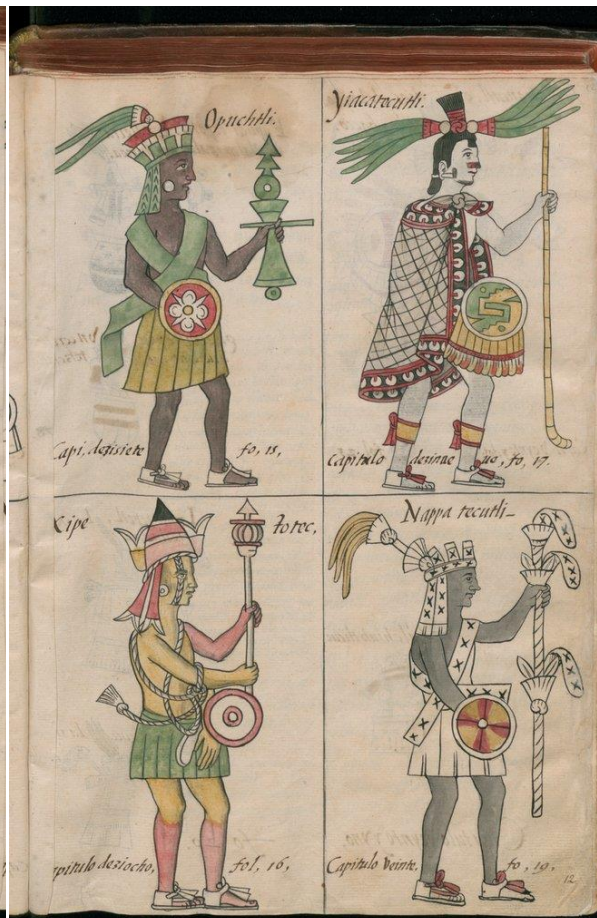 Opuchtli.
Capi, dezisiete fo, 15,
Yiacatecutli.
Capitulo dezinue ue, fo, 17.
Xipe totec,
pitulo deziocho, fol, 16,
Nappa tecutli_
Capitulo Veinte, fo, 19,
12